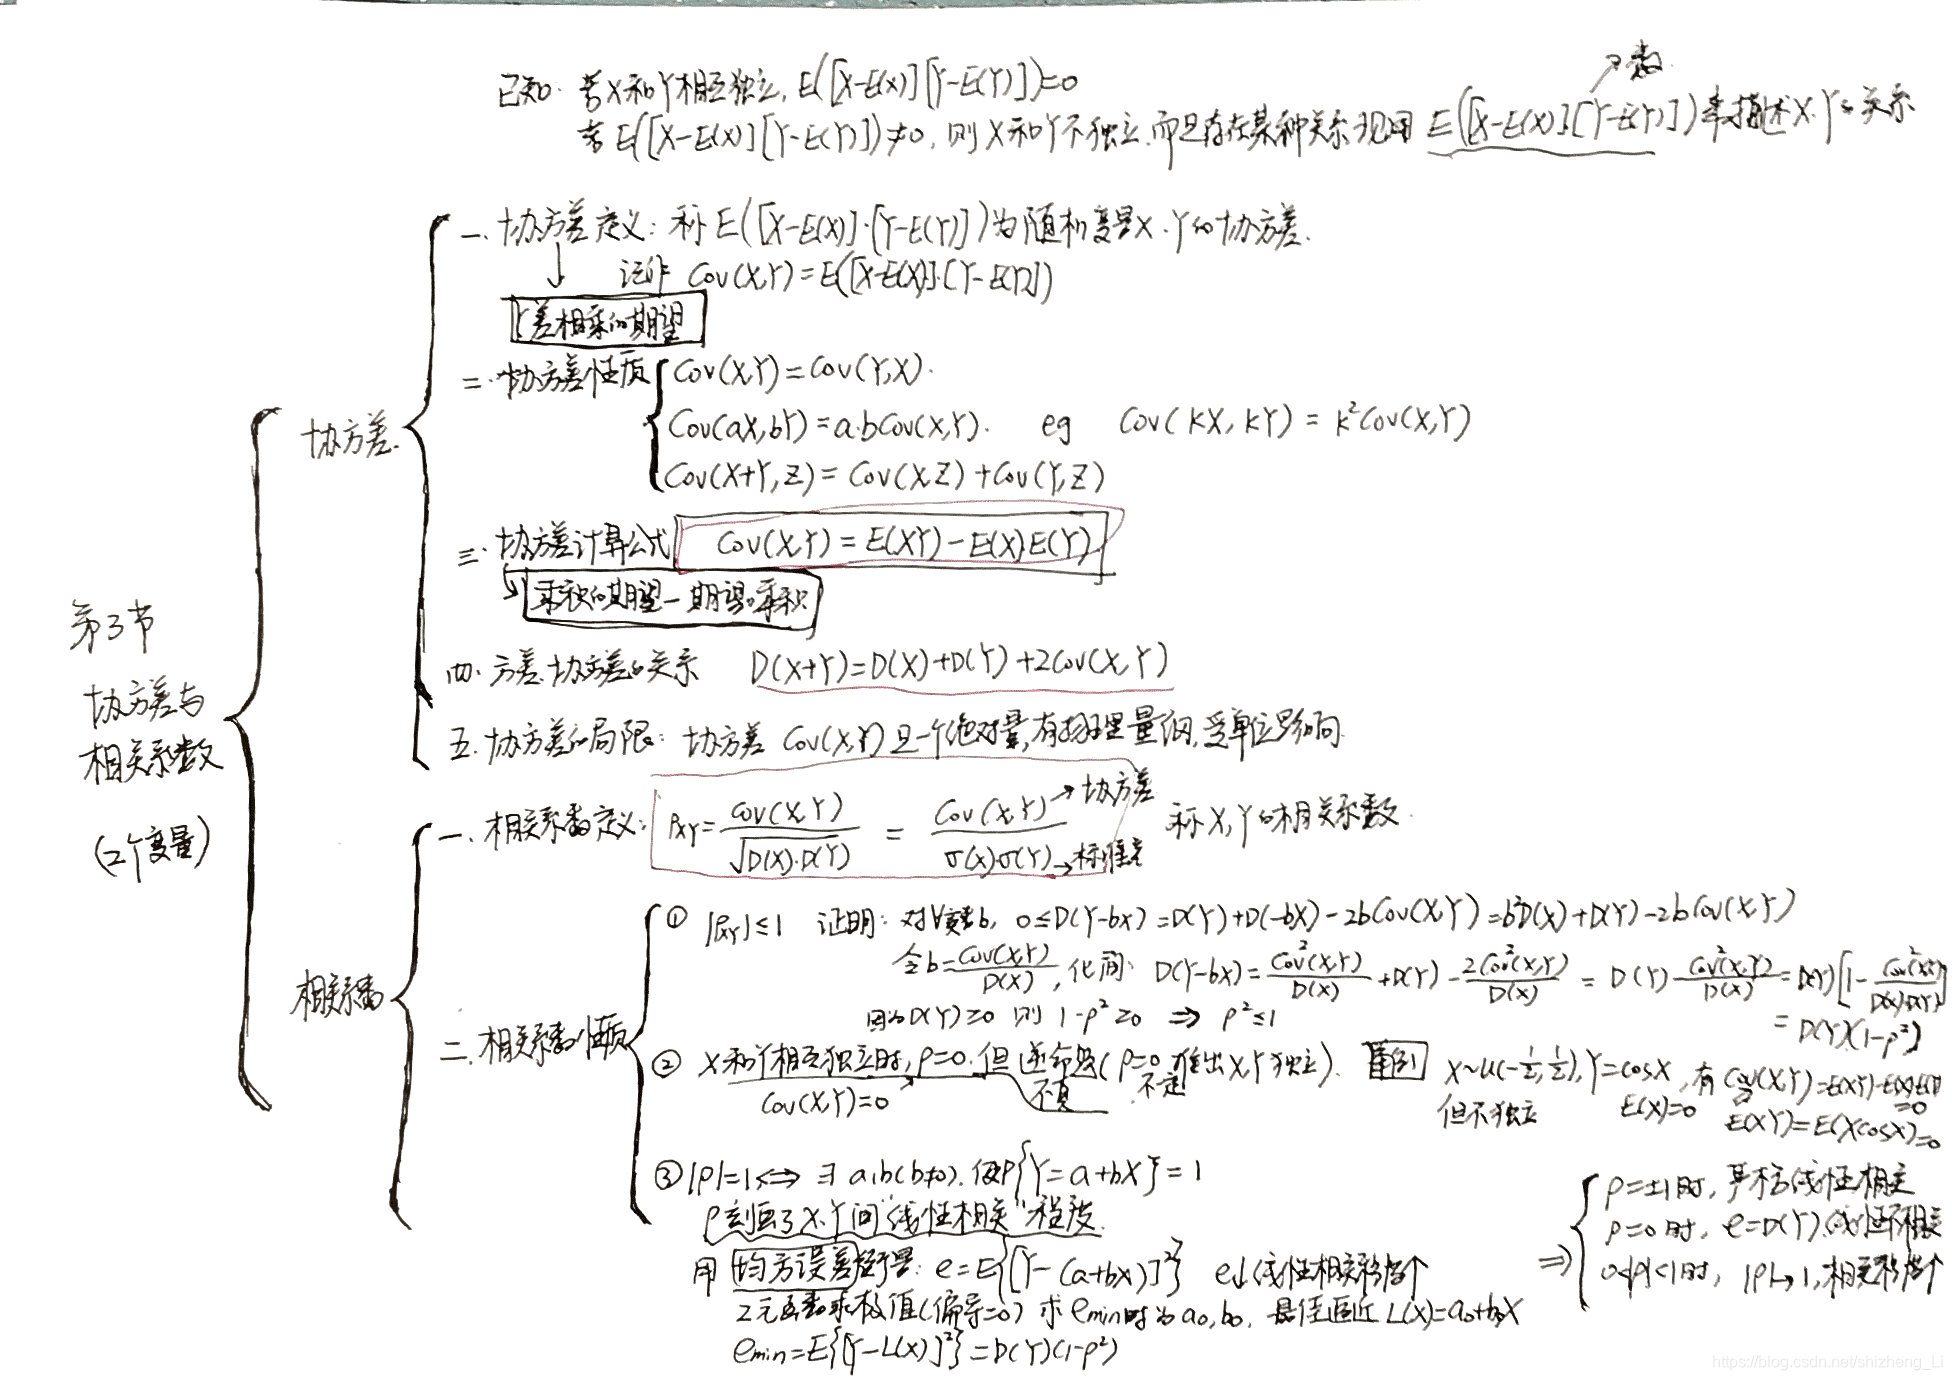 数
已知: 若X和Y相互独立, E([X-E(X)][Y-E(Y)])=0
若E([X-E(X)][Y-E(Y)])≠0, 则X和Y不独立.而且存在某种关系 现用 E([X-E(X)][Y-E(Y)])来描述X.Y的关系
第3节
协方差与
相关系数
(2个变量)
协方差.
一. 协方差定义: 称E([X-E(X)]·[Y-E(Y)])为随机变量X.Y的协方差.
↓ 记作 Cov(X,Y)=E([X-E(X)]·[Y-E(Y)])
差相乘的期望
二. 协方差性质 Cov(X,Y)=Cov(Y,X).
Cov(aX,bY)=a·bCov(X,Y). eg Cov(kX, kY) = k²Cov(X,Y)
Cov(X+Y,Z)=Cov(X,Z)+Cov(Y,Z)
三. 协方差计算公式 Cov(X,Y) = E(XY)-E(X)E(Y)
乘积的期望-期望的乘积
四. 方差.协方差的关系 D(X+Y)=D(X)+D(Y)+2Cov(X,Y)
五. 协方差的局限: 协方差 Cov(X,Y)是一个绝对量,有物理量纲,受单位影响.
相关系数
一. 相关系数定义: ρXY = Cov(X,Y)/√D(X)·D(Y) = Cov(X,Y)/σ(X)σ(Y) →协方差 →标准差 称X,Y的相关系数.
二. 相关系数性质
① |ρXY|≤1 证明: 对∀实数b, 0≤D(Y-bX)=D(Y)+D(-bX)-2bCov(X,Y)=b²D(X)+D(Y)-2bCov(X,Y)
令b=Cov(X,Y)/D(X), 化简: D(Y-bX)=Cov²(X,Y)/D(X)+D(Y)-2Cov²(X,Y)/D(X) = D(Y)-Cov²(X,Y)/D(X)=D(Y)[1-Cov²(X,Y)/D(X)D(Y)]
因为D(Y)≥0 则 1-ρ²≥0 ⇒ ρ²≤1 =D(Y)(1-ρ²)
② X和Y相互独立时, ρ=0. 但逆命题(ρ=0 推出X,Y独立). X~U(-1/2,1/2),Y=cosX, 有Cov(X,Y)=E(XY)-E(X)E(Y)
Cov(X,Y)=0 不真 不定 但不独立 E(X)=0 =0
E(XY)=E(XcosX)=0
③ |ρ|=1⟺∃a,b(b≠0).使P{Y=a+bX}=1
ρ刻画了X.Y间"线性相关"程度.
用均方误差衡量: e=E{[Y-(a+bX)]²} e↓线性相关程度↑
2元函数求极值(偏导=0) 求emin时为a0,b0. 最佳逼近L(X)=a0+b0X
emin=E{[Y-L(X)]²}=D(Y)(1-ρ²)
⇒ ρ=±1时, 严格线性相关
ρ=0时, e=D(Y).线性不相关
0<|ρ|<1时, |ρ|→1,相关程度↑
https://blog.csdn.net/shizheng_Li